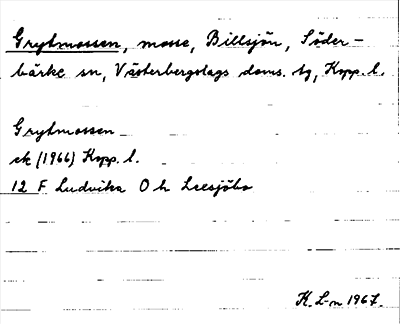 Grytmossen, mosse, Billsjön, Söder-
bärke sn, Västerbergslags doms. tg, Kopp. l.
Grytmossen
ek (1966) Kopp. l.
12 F Ludvika O h Leesjöbo
K. L-n 1967.